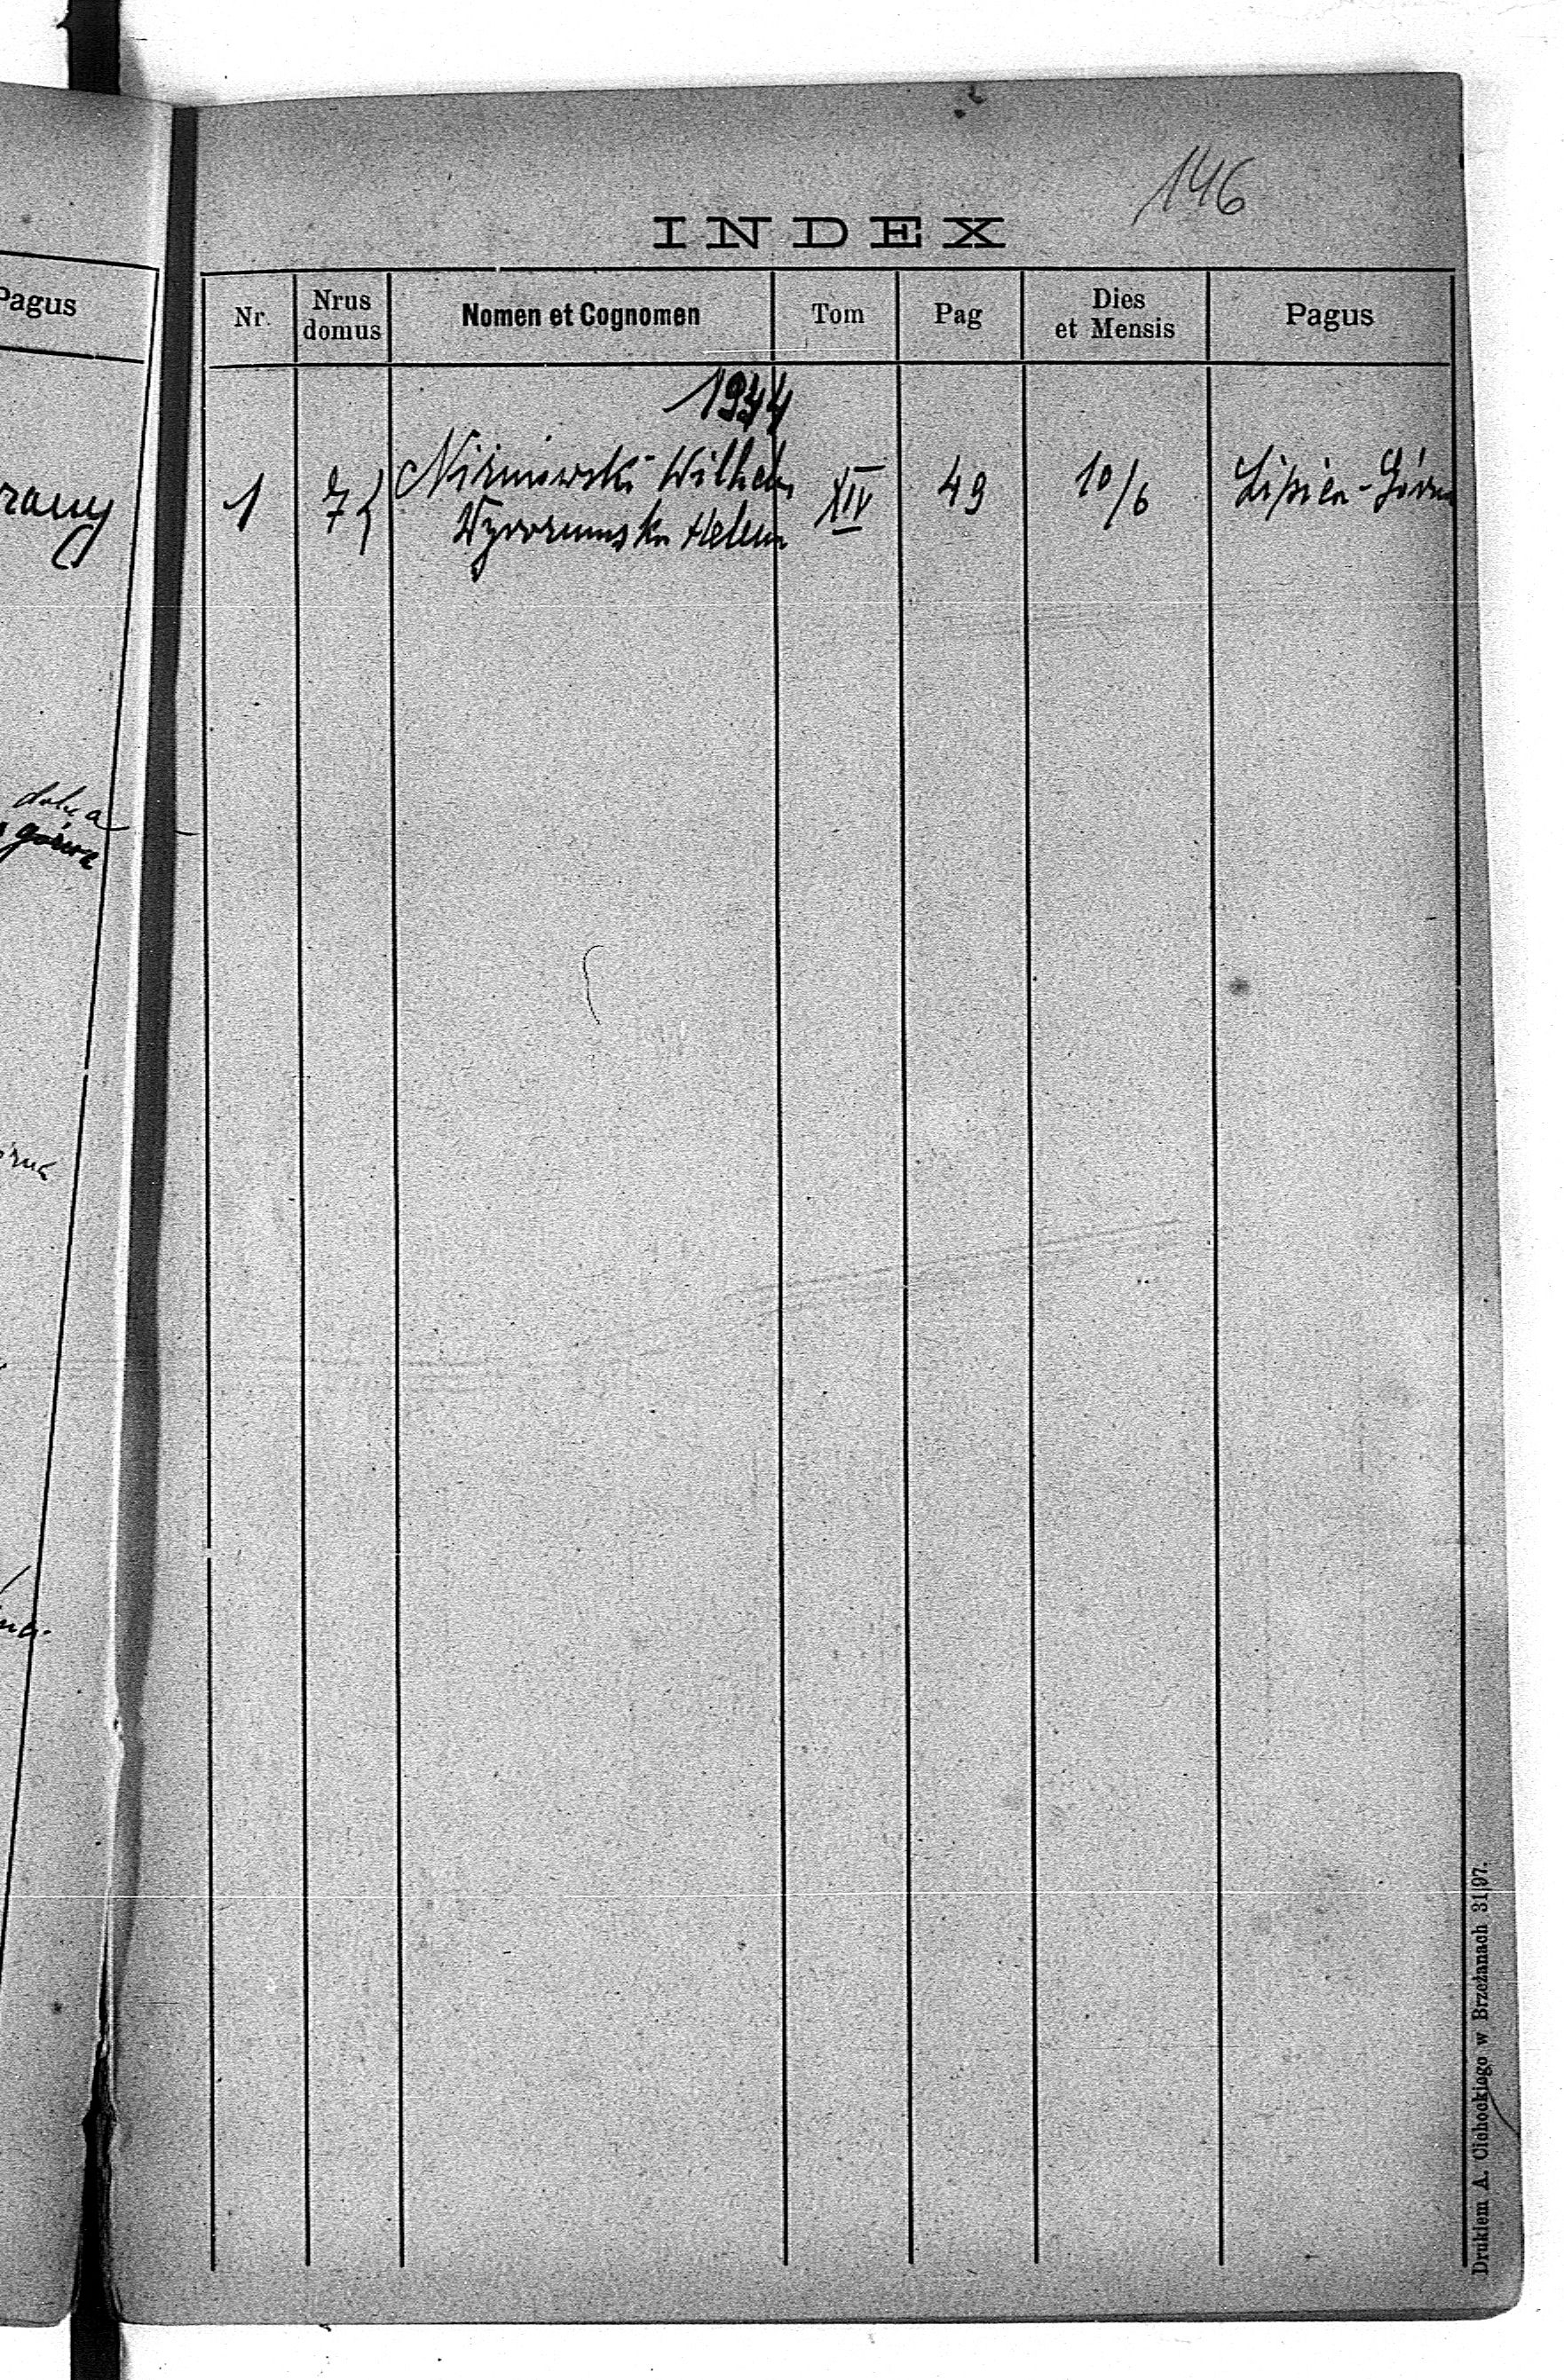 Pagus
dolna
górna
146
INDEX
Nr. Nrus domus Nomen et Cognomen Tom Pag Dies et Mensis Pagus
1944
1 7 { Wilhelm XIV 49 10/6 Lipica-Górna
Helena
Drukiem A. Cichockiego w Brzeżanach 31|97.